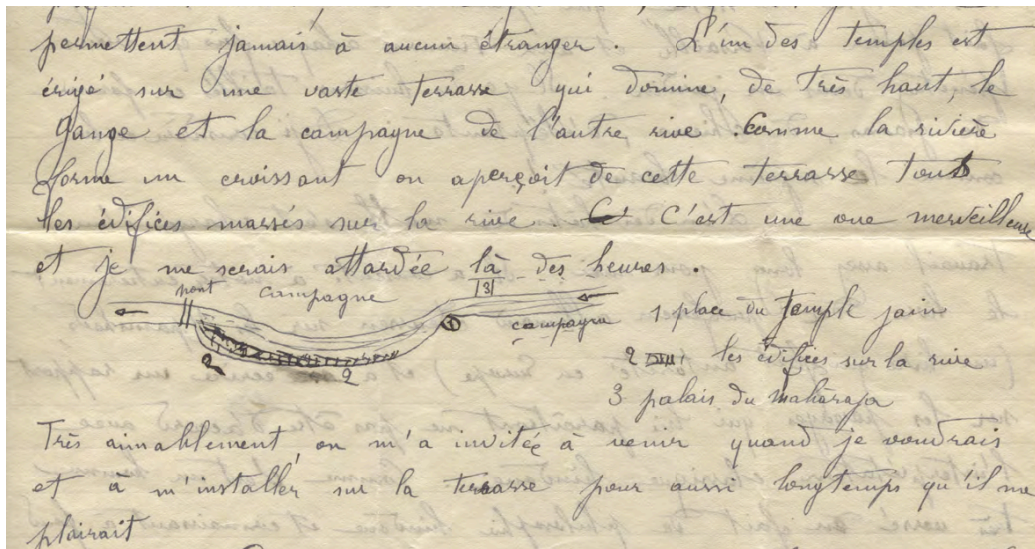 permettent jamais à aucun étranger. L'un des temples est
érigé sur une vaste terrasse qui domine, de très haut, le
Gange et la campagne de l'autre rive. Comme la rivière
forme un croissant on aperçoit de cette terrasse tous
les édifices massés sur la rive. C'est une vue merveilleuse
et je me serais attardée là des heures.
pont campagne 3
1 campagne 1 place du temple jain
2 2 2 les édifices sur la rive
3 palais du mahâraja
Très aimablement, on m'a invitée à venir quand je voudrais
et à m'installer sur la terrasse pour aussi longtemps qu'il me
plairait